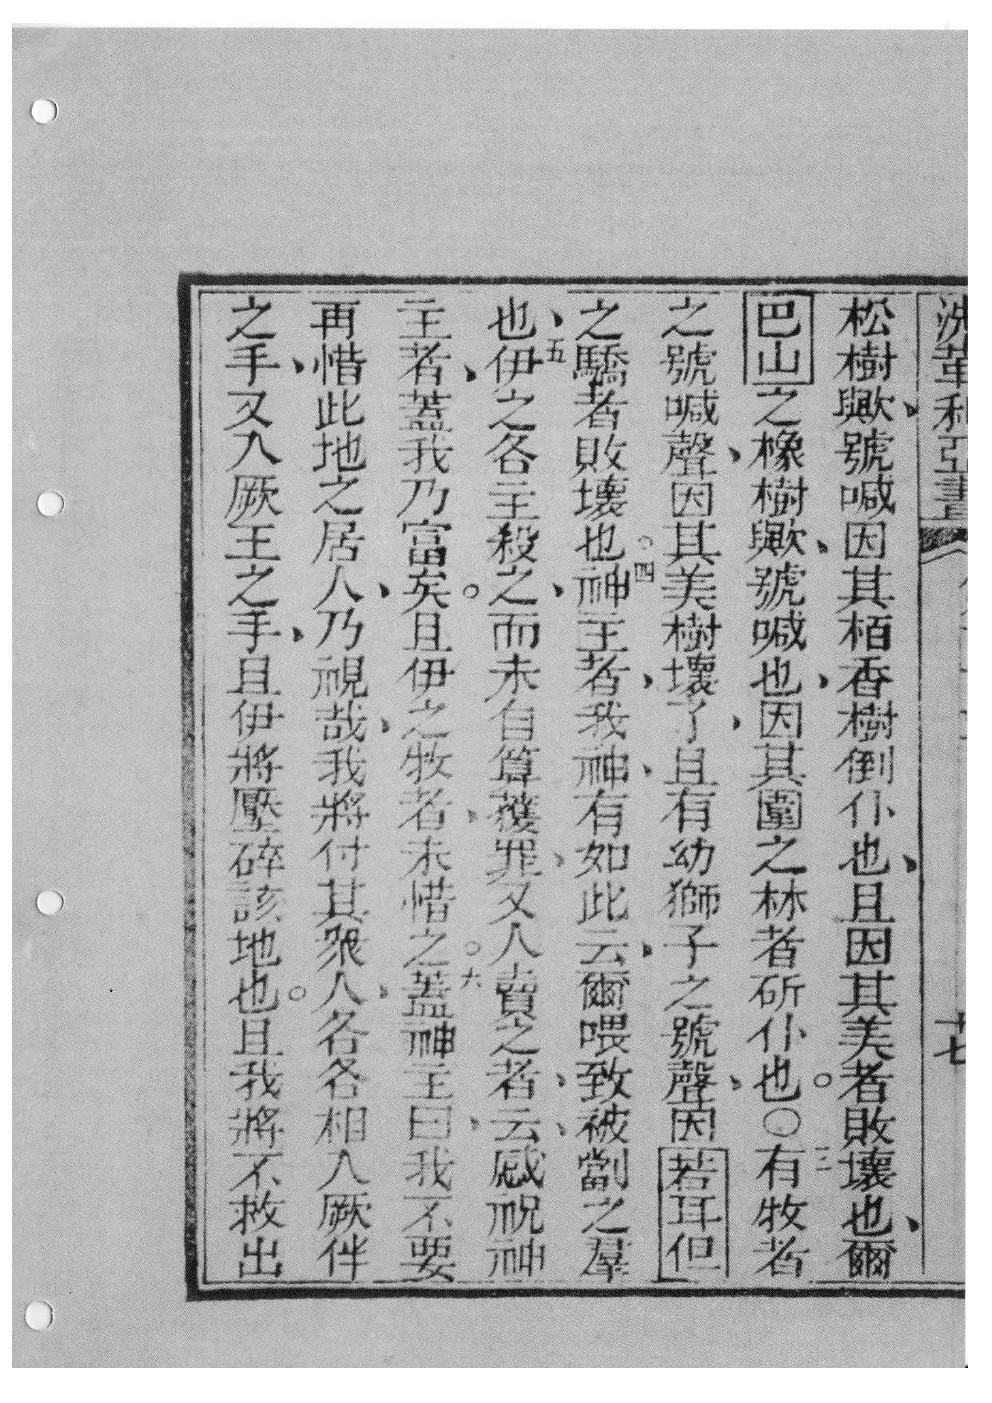 洗革利亞書 十七
松樹歟、號喊因其栢香樹倒仆也、且因其美者敗壞也、爾
巴山之橡樹歟、號喊也、因其圍之林者斫仆也。〇三有牧者
之號喊聲、因其美樹壞了、且有幼獅子之號聲、因若耳但
之驕者敗壞也。四神主者、我神、有如此云、爾喂致被劏之羣
也、五伊之各主殺之、而未自算獲罪、又人賣之者、云、感祝神
主者、蓋我乃富矣。且伊之牧者、未惜之。六蓋神主曰、我不要
再惜此地之居人、乃視哉、我將付其衆人、各各相入厥伴
之手、又入厥王之手、且伊將壓碎該地也。且我將不救出